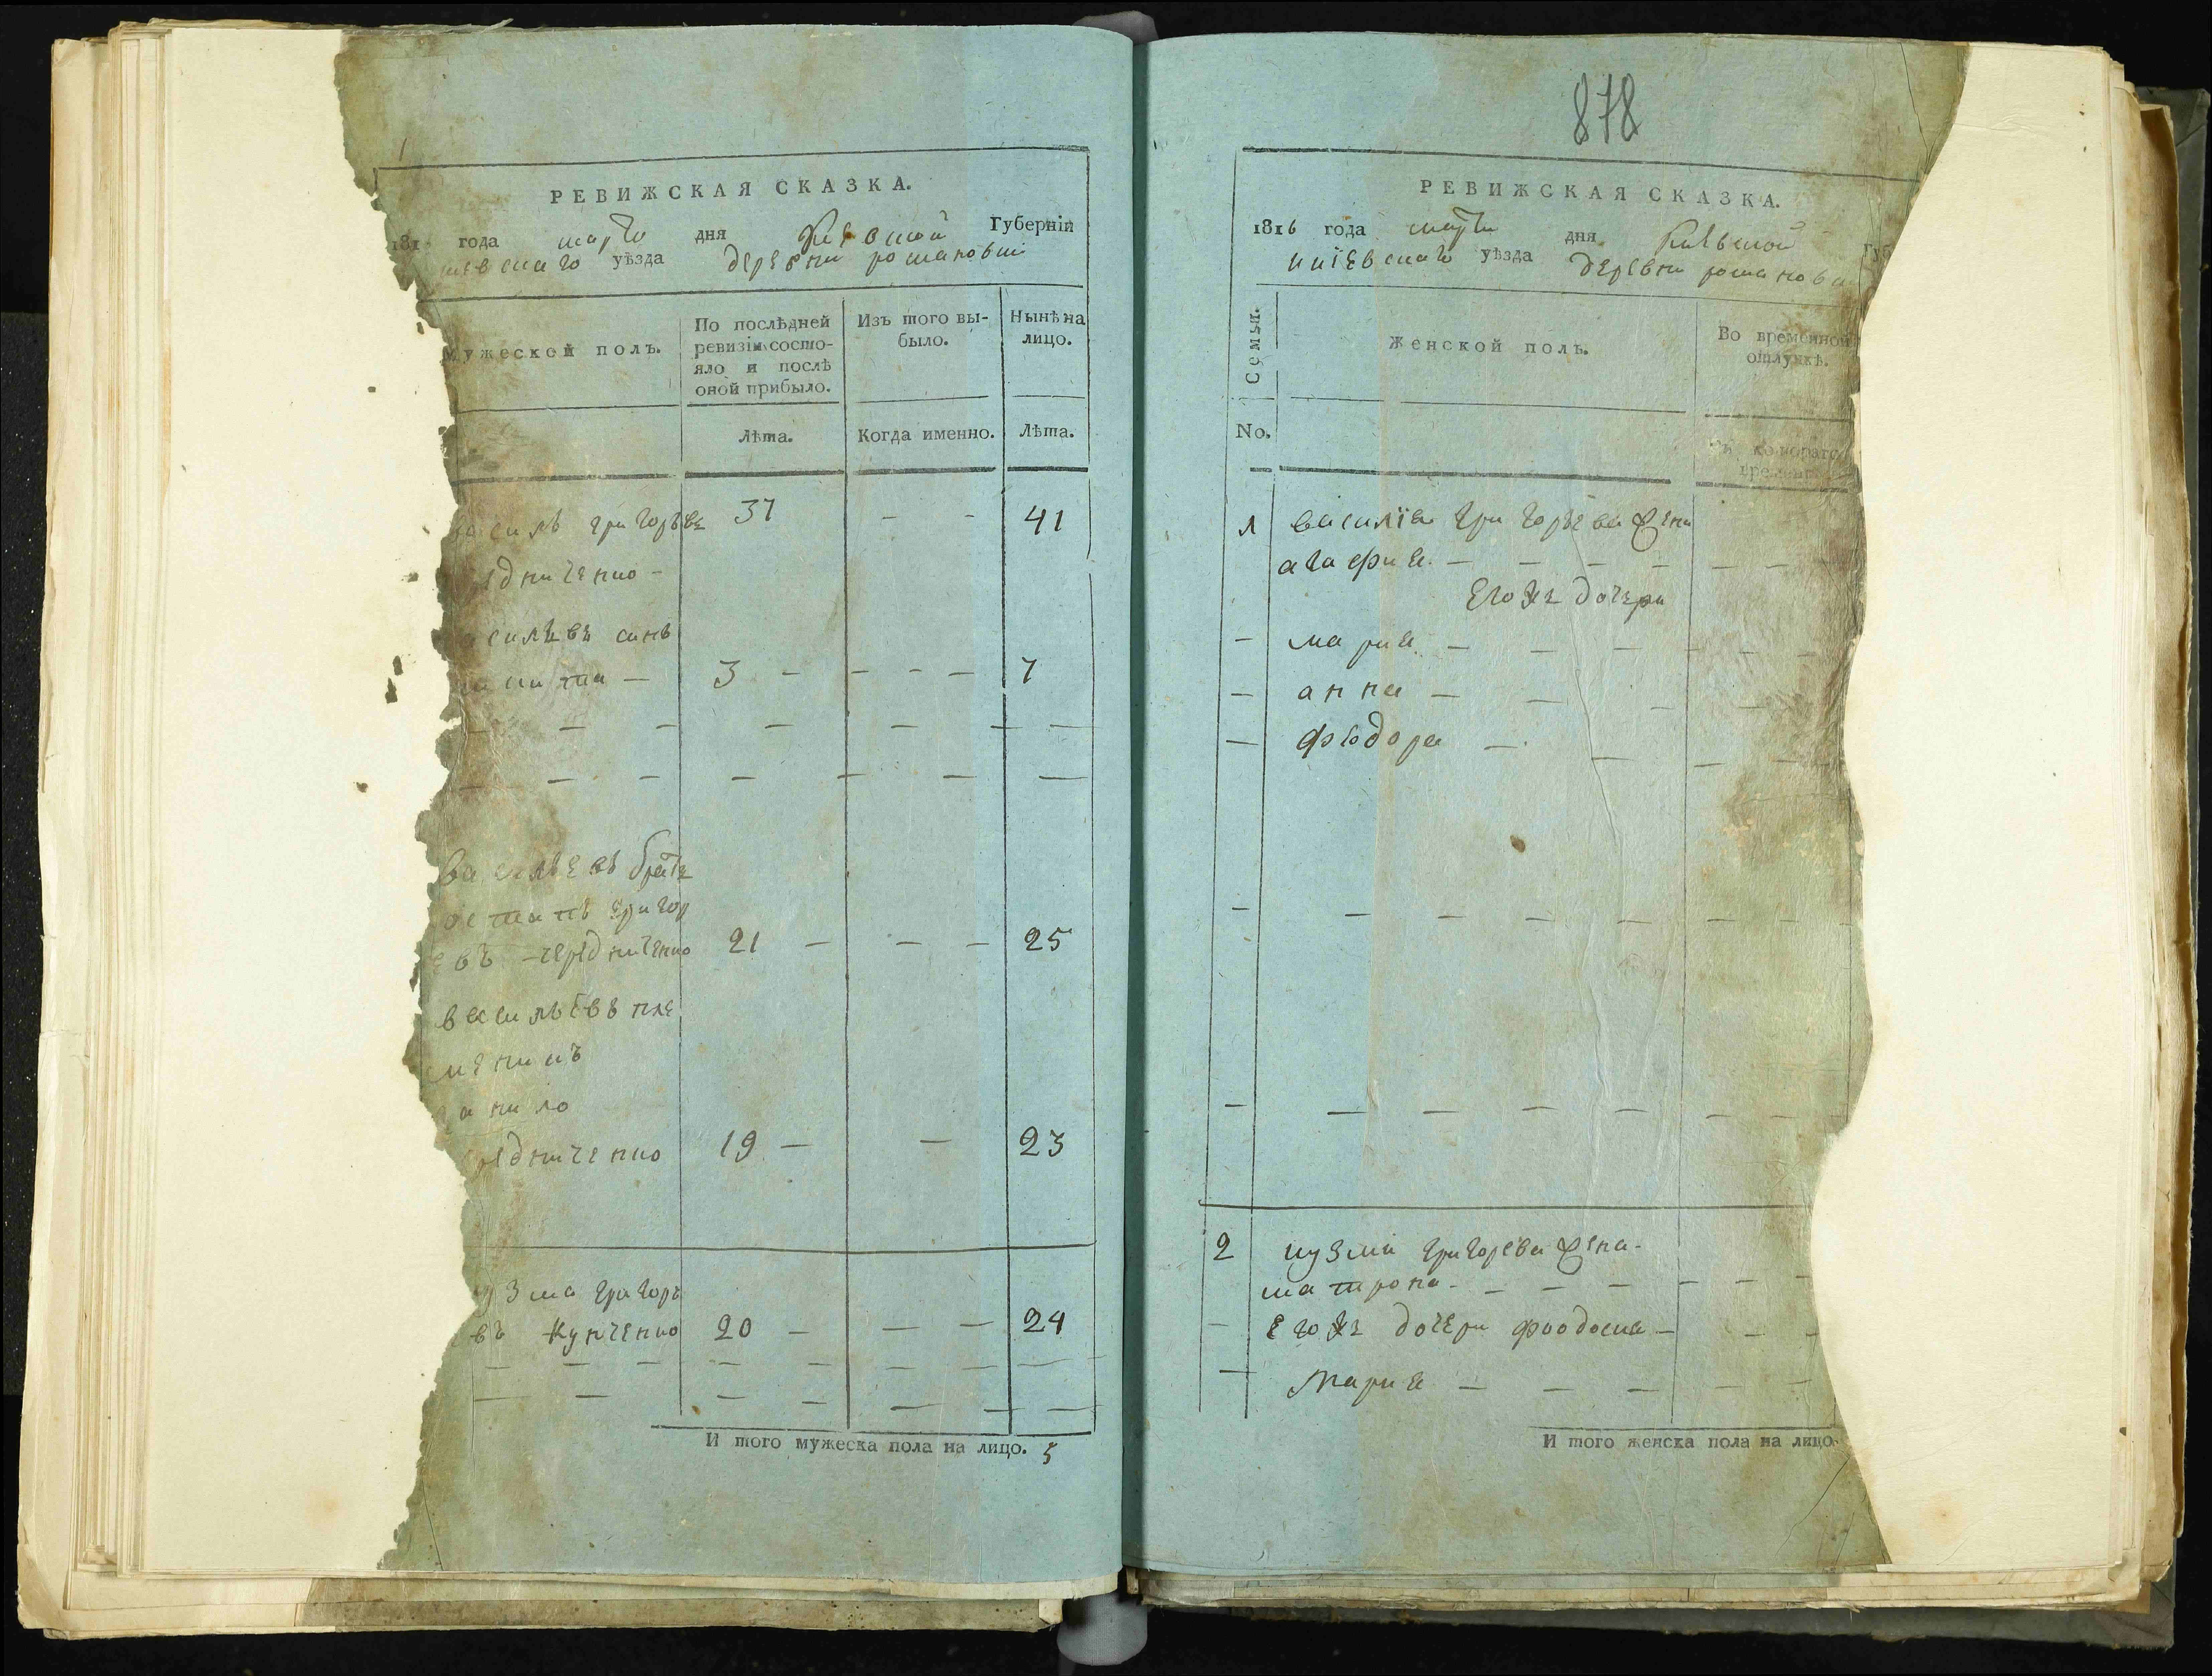 РЕВИЖСКАЯ СКАЗКА.
181 года марта дня Киевской Губерніи
иевскаго уѣзда деревни романовки
Мужеской полъ.
По послѣдней ревизіи состояло и послѣ оной прибыло.
Изъ того выбыло.
Нынѣ на лицо.
Лѣта.
Когда именно.
Лѣта.
василь григорьев 37 - - 41
едниченко -
асилевъ синъ
никита - 3 - - - - 7
васильевъ братъ
остапъ григор
евъ чередниченко 21 - - - 25
васильевъ пле
меникъ
анило
редниченко 19 - - 23
узма григорь
евъ Кунченко 20 - - - 24
И того мужеска пола на лицо. 5
878
РЕВИЖСКАЯ СКАЗКА.
1816 года марта дня Киевской Губ
киевскаго уѣзда деревни романовки
Семьи.
Женской полъ.
Во временной отлучкѣ.
No.
Съ котораго времени.
1 василія григорьева жена
агафия - - - -
Егоже дочери
- мария - - - -
- анна - - - -
- феодора - - - -
2 кузми григорева жена -
матрона - - - -
- Егоже дочери феодосия - - -
- Мария - - - -
И того женска пола на лицо.